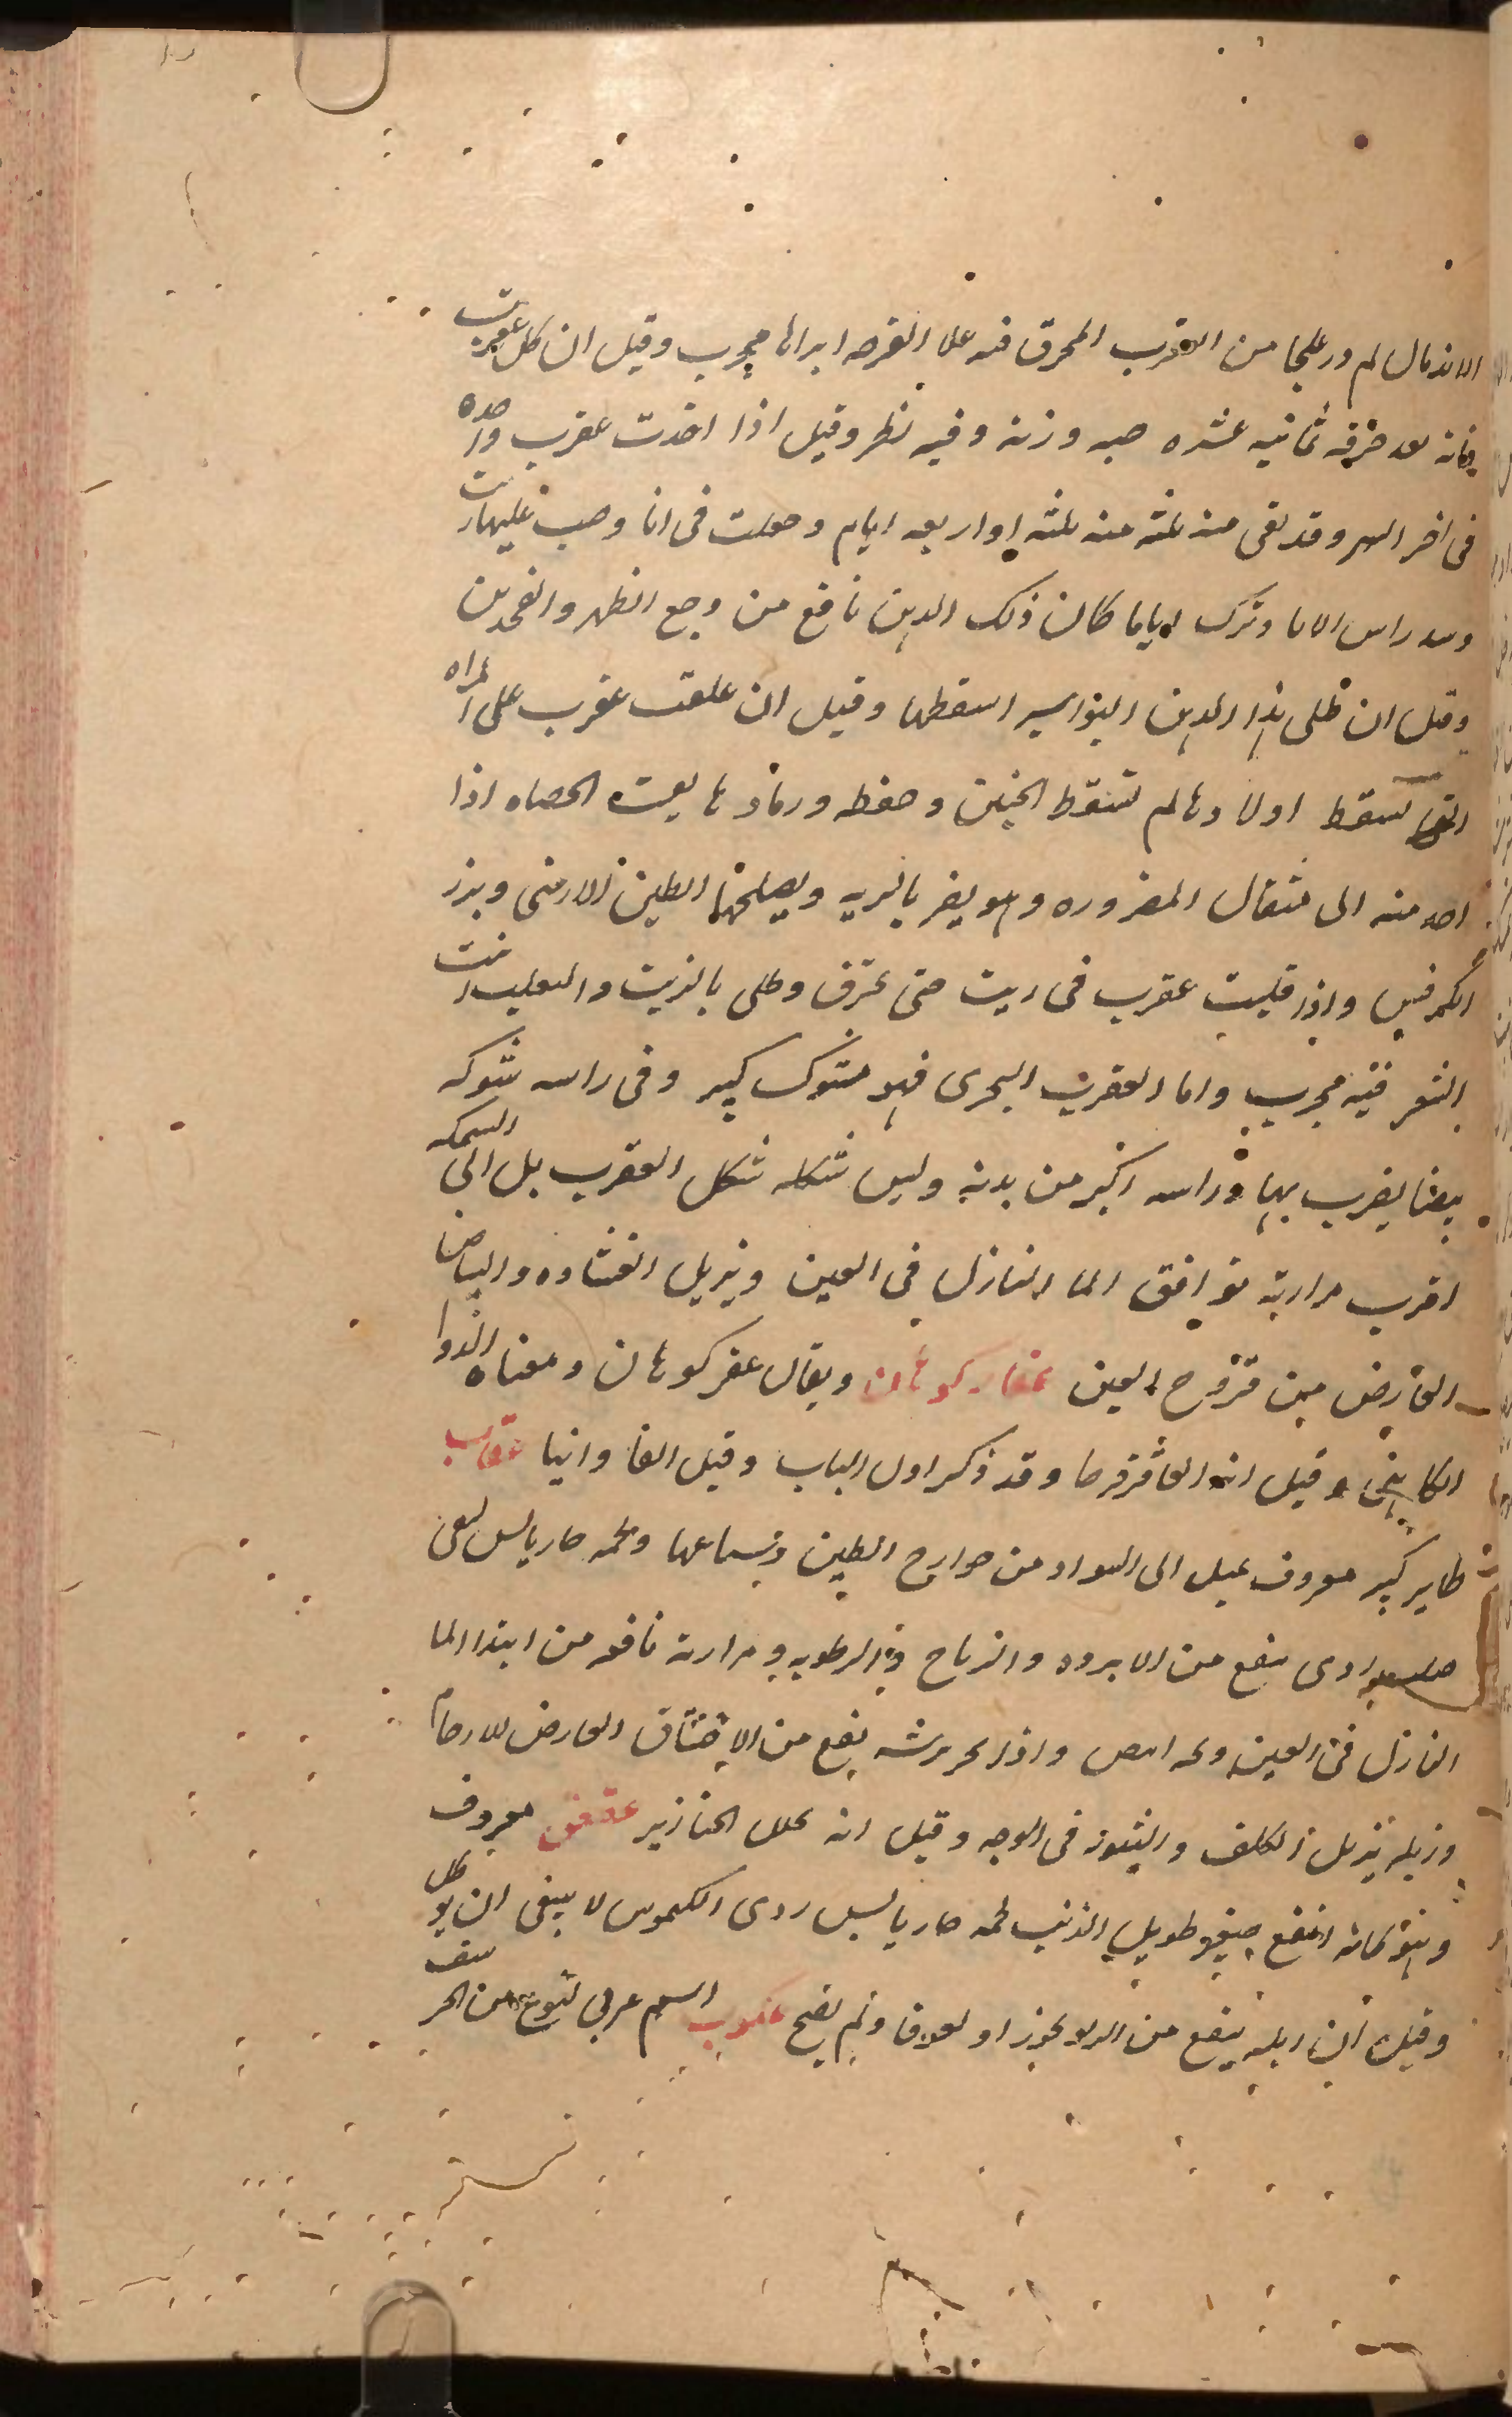 الاندمال لم در علىها من العقرب المحرق فنه علا القرحه ابراها مجرب وقيل ان كل عقرب
فانه بعد حرقه ثمانيه عشره حبه وزنه وفيه نظر وقيل اذا اخذت عقرب واحده
فى اخر الشهر وقد بقى منه ثلثه او اربعه ايام وجعلت فى انا وصب عليها زيت
وسد راس الانا وترك اياما كان ذلك الدهن نافع من وجع الظهر والفخذين
وقيل ان طلى بهذا الدهن البواسير اسقطها وقيل ان علقت عقرب على امراه
التى تسقط اولادها لم تسقط الجنين وحفظه ورمادها يفتت الحصاه اذا
اخذ منه الى مثقال المضروره وهو يضر بالريه ويصلحها الطين الارمنى وبزر
الكرفس واذا قليت عقرب فى زيت حتى تحترق وطلى بالزيت دا الثعلب انبت
الشعر فيه مجرب واما العقرب البحرى فهو مشوك كبير وفى راسه شوكه
بيضا يضرب بها وراسه اكبر من بدنه وليس شكله شكل العقرب بل الى السمكه
اقرب مرارته توافق الما النازل فى العين ويزيل الغشاوه والبياض
العارض من قروح العين عقار كوهان ويقال عقر كوهان ومعناه الدوا
الكاهنى وقيل انه العاقرقرحا وقد ذكر اول الباب وقيل الفاوانيا عقاب
طاير كبير معروف يميل الى السواد من جوارح الطير وسباعها ولحمه حار يابس
ينفع من الابرده والرياح والرطوبه ومرارته نافعه من ابتدا الما
النازل فى العين واذا بخر بريشه ينفع من الاختناق العارض للارحام
وزبله يزيل الكلف والبثور فى الوجه وقيل انه يحلل الخنازير عقعق معروف
وهو طاير ابقع صغير طويل الذنب لحمه حار يابس ردى الكيموس لا ينبغى ان يوكل
وقيل ان زبله ينفع من الربو بخورا او لعوقا ولم يصح عكوب اسم عربى لنوع من الحرشف